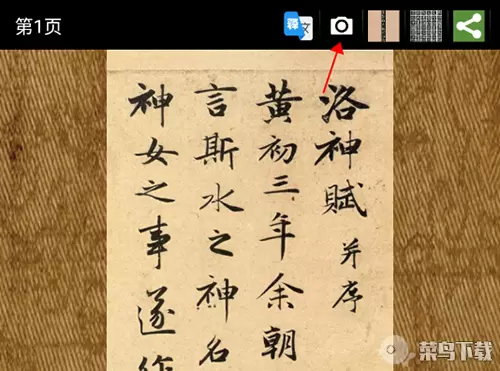 第1页
洛神賦 并序
黄初三年余朝
言斯水之神名
神女之事遂
菜鸟下载